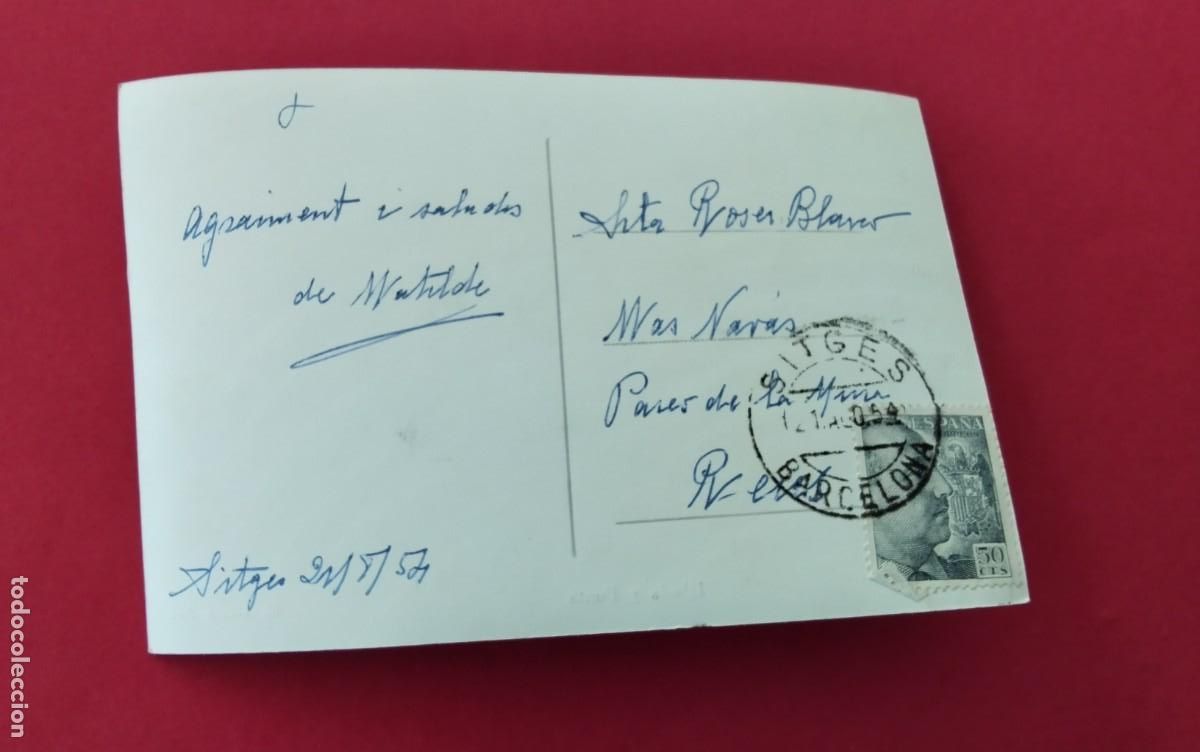 Agraiment i saludos
de Matilde
Sitges 21/8/54
Srta Roser Blanco
Mas Navás
Paseo de la Mina
Reus
SITGES
21.AGO.54
BARCELONA
ESPAÑA
50
CTS
todocoleccion
todocoleccion